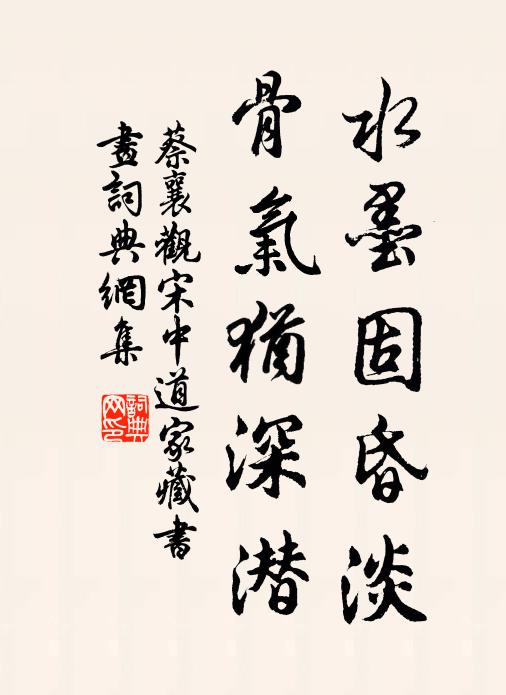 水墨固昏淡
骨氣猶深潛
蔡襄觀宋中道家藏書
畫詞典網集
詞典網印